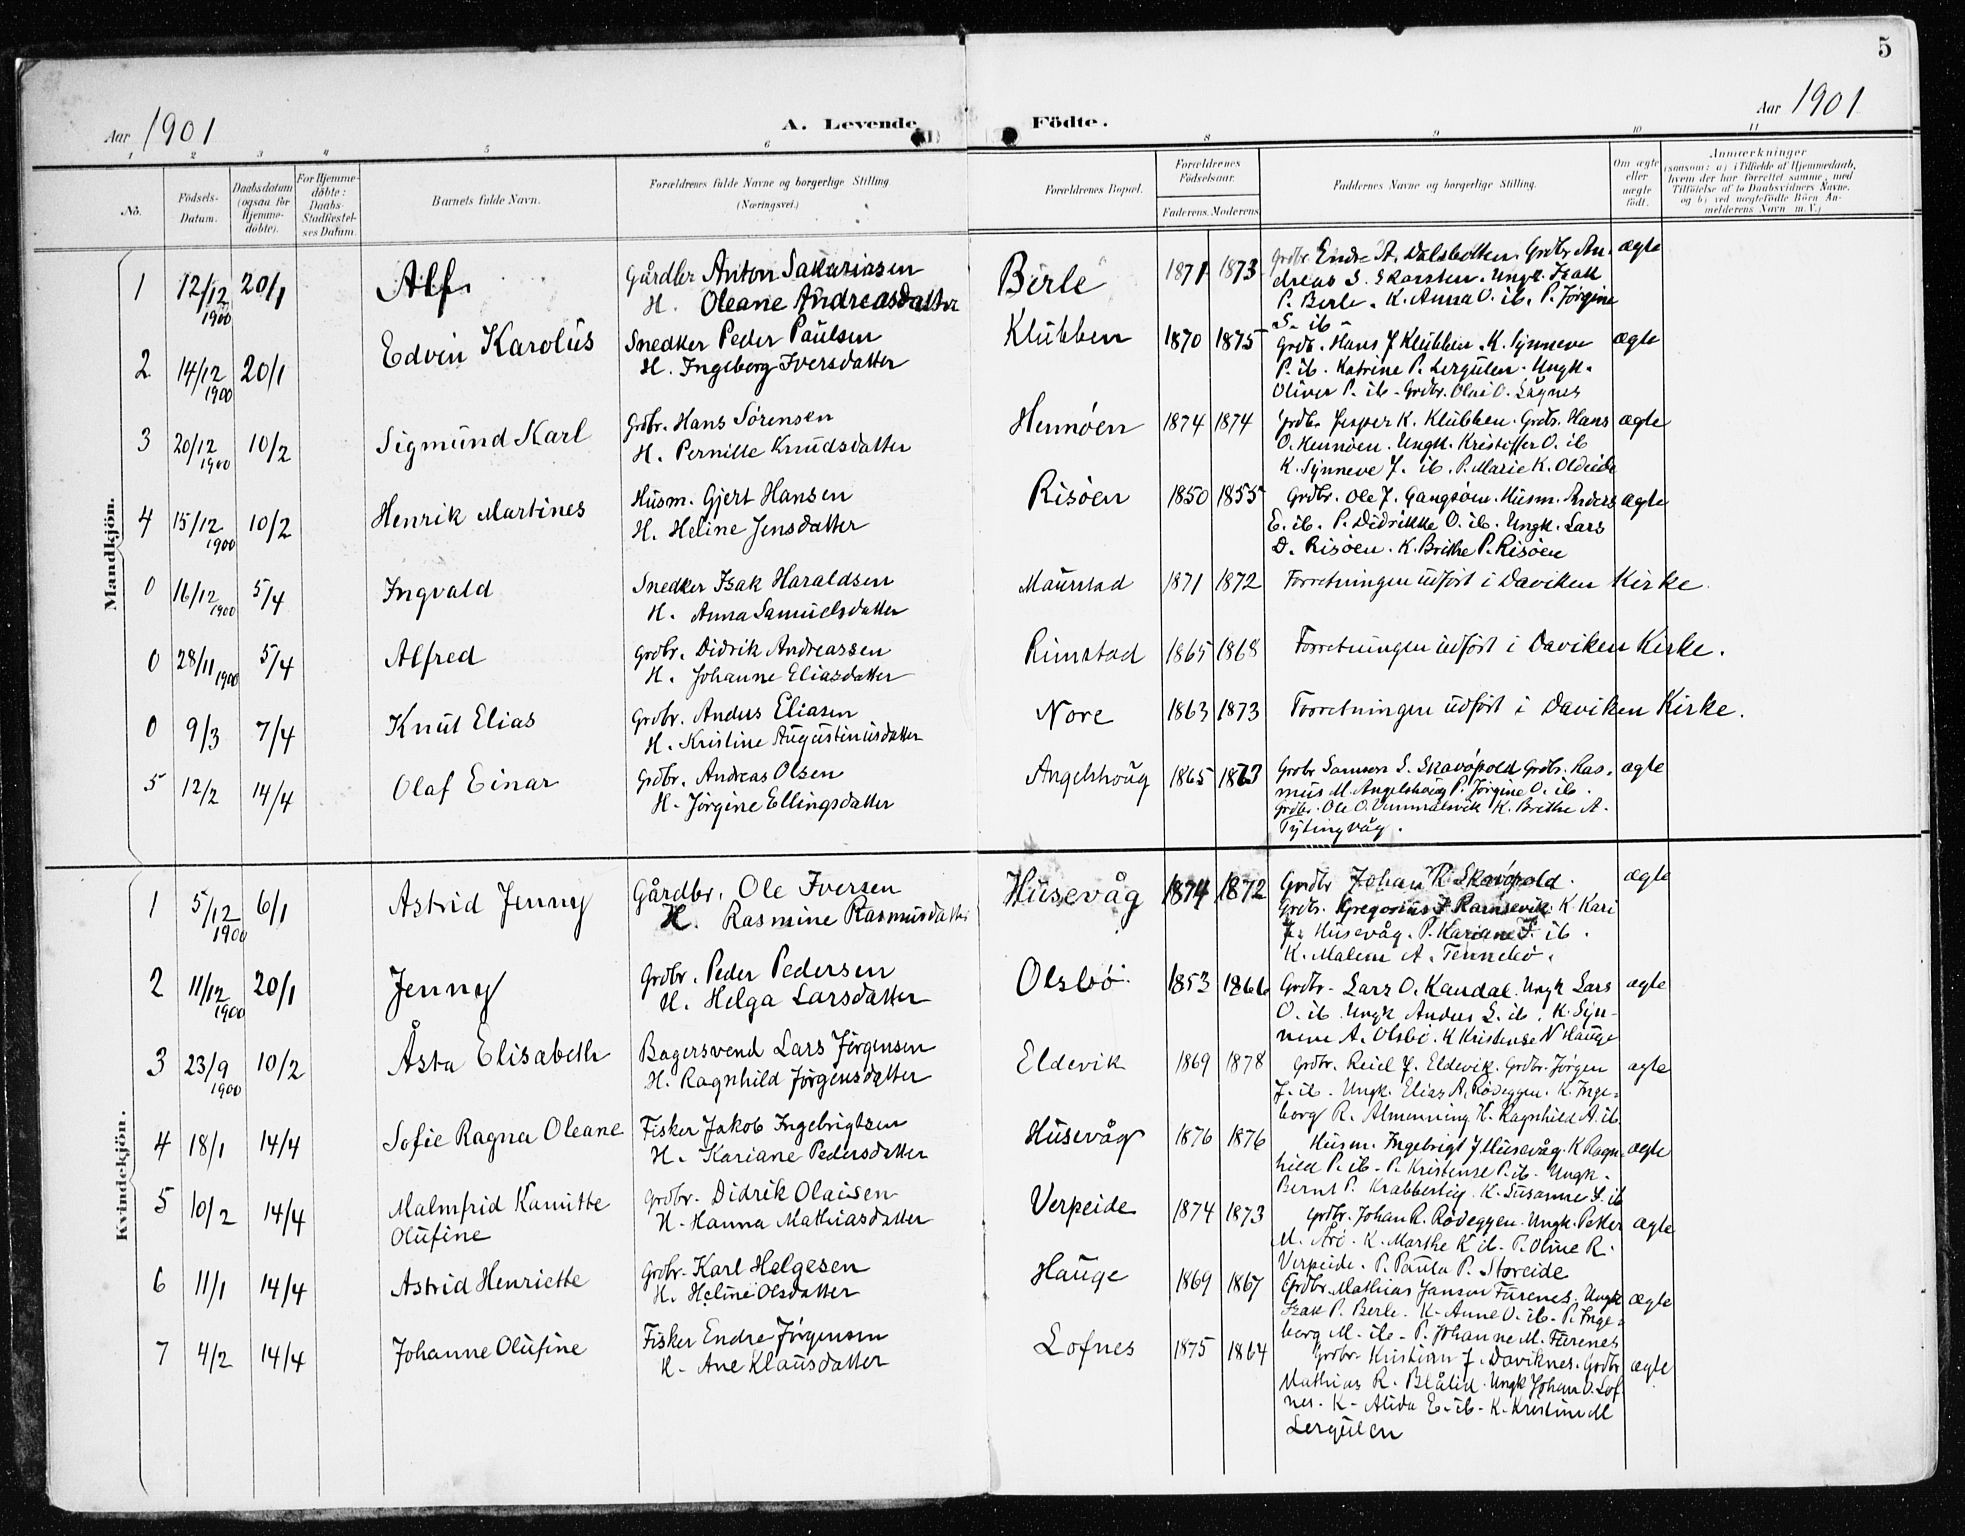 5
Aar 1901
A. Levende Födte.
Aar 1901
1 2 3 4 5 6 8 9 10 11
No.
Födsels-Datum.
Daabsdatum (ogsaa for Hjemme-döbte).
For Hjemme-döbte: Daabs-Stadfæstel-ses Datum.
Barnets fulde Navn.
Forældrenes fulde Navne og borgerlige Stilling. (Næringsvei.)
Forældrenes Bopæl.
Forældrenes Födselsaar.
Faderens. Moderens.
Faddernes Navne og borgerlige Stilling.
Om ægte eller uægte födt.
Anmærkninger
(saasom: a) i Tilfælde af Hjemmedaab, hvem der har forrettet samme, med Tilföielse af to Daabsvidners Navne, og b) ved uægtefödte Börn Anmelderens Navn m. V.)
Mandkjön.
1 12/12 1900 20/1 Alf. Gårdbr Anton Sakariasen Berle 1871 1873 Grdbr. Endre A. Dalsbotten. Grdbr. An- ægte
H. Oleane Andreasdatter dreas S. Skarsten. Ungk. Isak
P. Berle. K. Anna O. ib. P. Jørgine
S. ib.
2 14/12 1900 20/1 Edvin Karolus Snedker Peder Paulsen Klubben 1870 1875 Grdb. Hans J Klubben. K. Synneve ægte
H. Ingeborg Iversdatter P. ib. Katrine P. Lergulen. Ungk.
Oliver P. ib. Grdbr. Olai O. Lågnes
3 20/12 1900 10/2 Sigmund Karl Grdbr. Hans Sørensen Hennøen 1874 1874 Grdbr. Jesper K. Klubben. Grdb. Hans ægte
H. Pernille Knudsdatter O. Hennøen. Ungk. Kristoffer O. ib
K. Synneve J. ib. P. Marie K. Oldeide
4 15/12 1900 10/2 Henrik Martines Husm. Gjert Hansen Risøen 1850 1855 Grdbr. Ole J. Gangsøen. Husm. Anders ægte
H. Heline Jensdatter E. ib. P. Didrikke O. ib. Ungk. Lars
D. Risøen. K. Brithe P. Risøen
0 16/12 1900 5/4 Ingvald Snedker Isak Haraldsen Maurstad 1871 1872 Forretningen udført i Daviken Kirke.
H. Anna Samuelsdatter
0 28/11 1900 5/4 Alfred Grdbr. Didrik Andreassen Rimstad 1865 1868 Forretningen udført i Daviken Kirke.
H. Johanne Eliasdatter
0 9/3 7/4 Knut Elias Grdbr. Anders Eliasen Nore 1863 1873 Forretningen udført i Daviken Kirke.
H. Kristine Augustinusdatter
5 12/2 14/4 Olaf Einar Grdbr. Andreas Olsen Angelshoug 1865 1873 Grdbr Samson S. Skavøpold Grdbr. Ras- ægte
H. Jørgine Ellingsdatter mus M. Angelshoug P. Jørgine O. ib.
Grdbr. Ole O. Vemmelsvik K. Brithe A.
Tytingvåg.
Kvindekjön.
1 5/12 1900 6/1 Astrid Jenny Gårdbr. Ole Iversen Husevåg 1874 1872 Grdbr Johan R. Skavøpold. ægte
H. Rasmine Rasmusdatter Grdbr. Gregorius J Ramsevik. K. Kari
J. Husevåg. P. Kariane J. ib.
K. Malene A. Tennebø.
2 11/12 1900 20/1 Jenny Grdbr. Peder Pedersen Olsbö 1853 1866 Grdbr. Lars O. Kandal. Ungk Lars ægte
H. Helga Larsdatter O. ib. Ungk Anders L. ib. K. Syn-
neve A. Olsbö. K Kristense N Hauge
3 23/9 1900 10/2 Åsta Elisabeth Bagersvend Lars Jørgensen Eldevik 1869 1878 Grdbr. Reiel J. Eldevik. Grdbr. Jörgen ægte
H. Ragnhild Jørgensdatter J. ib. Ungk. Elias A. Rødeggen. K. Inge-
borg R. Almenning K. Ragnhild A. ib.
4 18/1 14/4 Sofie Ragna Oleane Fisker Jakob Ingebrigtsen Husevåg 1876 1876 Husm. Ingebrigt J Husevåg. K Ragn- ægte
H. Kariane Pedersdatter hild P. ib. P. Kristense P. ib. Ungk.
Bernt P. Krabbestig. K. Susanne S. ib
5 10/2 14/4 Malmfrid Kamitte Olufine Grdbr. Didrik Olaisen Verpeide 1874 1873 Grdbr. Johan R. Rødeggen. Ungk. Petter ægte
H. Hanna Mathiasdatter M. K. Marthe K ib. P. Oline R.
Verpeide. P. Paula P. Storeide
6 11/1 14/4 Astrid Henriette Grdbr. Karl Helgesen Hauge 1869 1867 Grdbr. Mathias Janson Furenes. Ungk ægte
H. Heline Olsdatter Isak P. Berle. K. Anne O. ib. P. Inge-
borg M. ib. P. Johanne M. Furenes
7 4/2 14/4 Johanne Olufine Fisker Endre Jørgensen Lofnes 1875 1864 Grdbr Kristian J. Daviknes. Grdbr ægte
H. Ane Klausdatter Mathias R. Blålid. Ungk Johan O. Lof-
nes. K. Alida E. ib. K. Kristine M
Lergulen